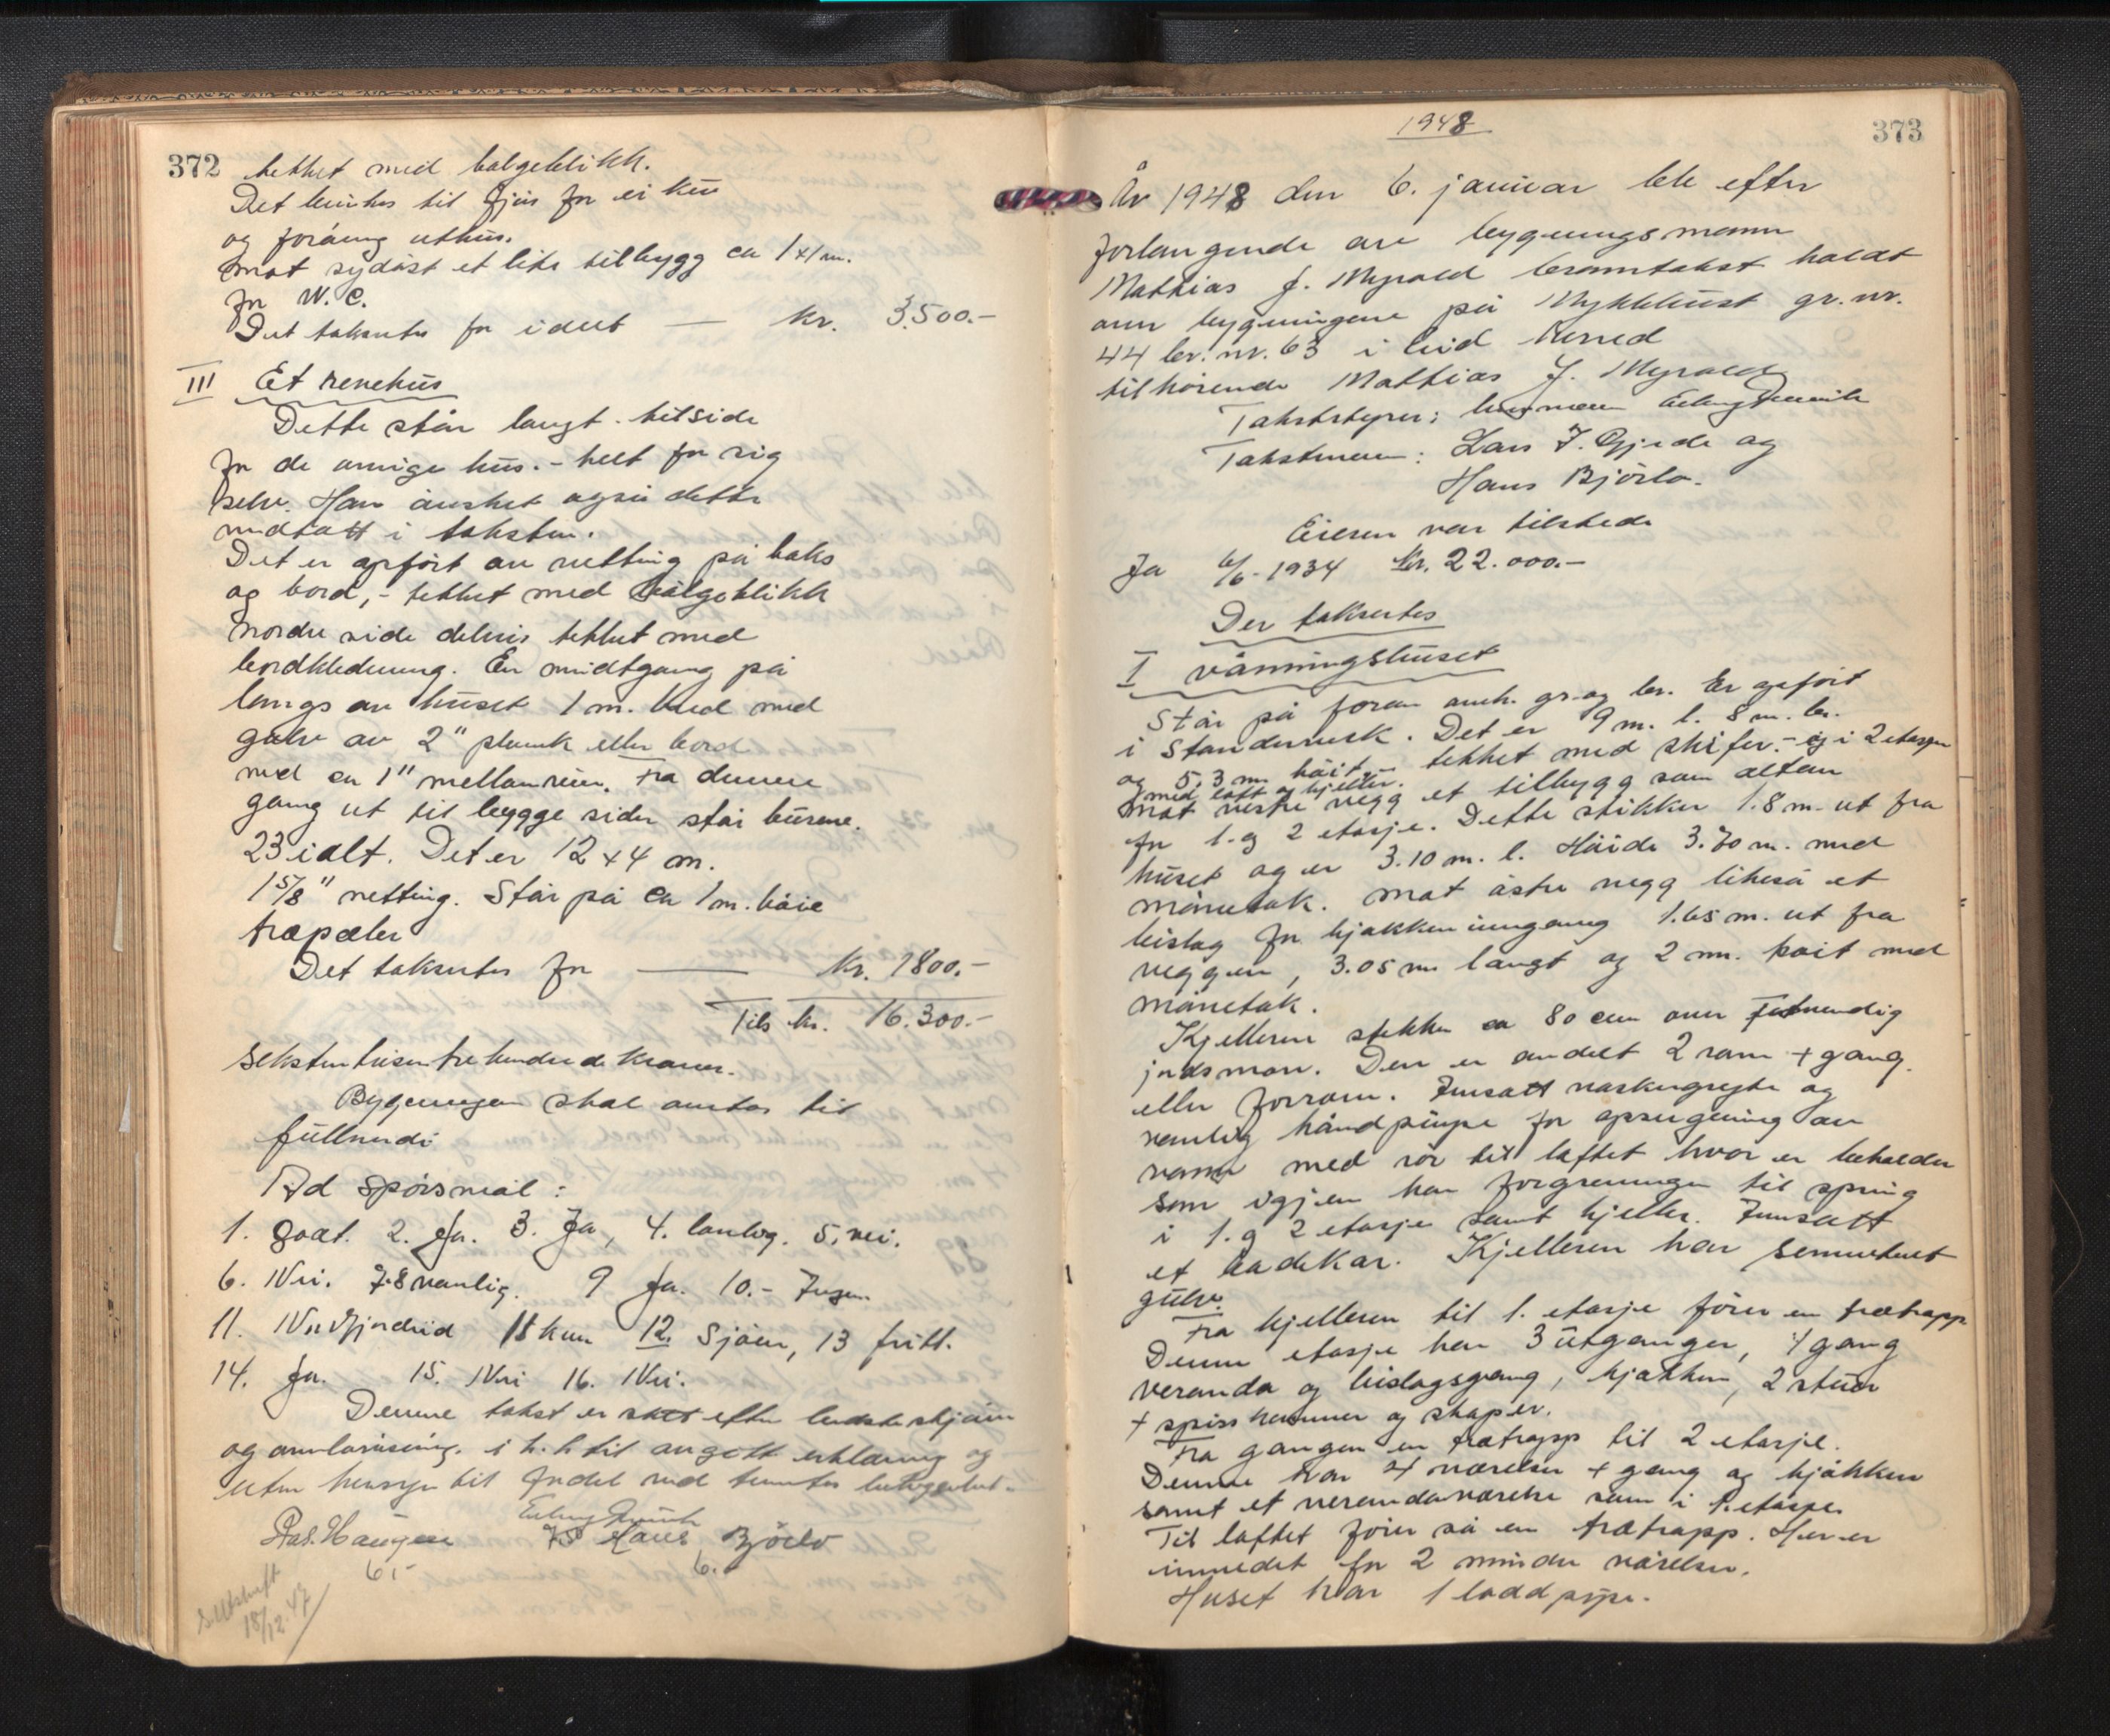 372
tekket med bølgeblikk.
Det brukes til fjøs for ei ku
og foråvrig uthus.
Mot sydøst et lite tilbygg ca 1x1 m.
for W.C.
Det takseres for i dett — kr. 3.500.-
III Et revehus
Dette står langt tilside
for de øvrige hus. - helt for sig
selv. Han ønsket også dette
medtatt i taksten.
Det er opført av netting på laks
og bord, - tekket med bølgeblikk
Nordre side delvis tekket med
bordkledning. En midtgang på
langs av huset 1 m. bred med
gulv av 2" plank eller bord
med ca 1" mellomrum. Fra denne
gang ut til begge sider står burene.
23 ialt. Det er 12 x 4 m.
1 5/8" netting. Står på ca 1 m. høie
træpæler
Det takseres for — kr. 1800.-
Tils kr. 16.300.-
Sekstentusentrehundrede kroner.
Bygningen skal antas til
fullverdi
Ad spørsmål:
1. godt. 2. Ja. 3. Ja, 4. landbg. 5. nei.
6. Nei. 7.8 vanlig. 9 Ja. 10.- Ingen
11. Nordfjordeid 11 km 12. Sjøen, 13 fritt.
14. Ja. 15. Nei 16. Nei.
Denne takst er satt efter bedste skjønn
og overbevisning. i h.h til avgitt erklæring og
uten hensyn til fordel ved tomtens beliggenhet.
Ras. Haugen Erling Hans Bjørlo
6,- 6.
s. utskrift
18/12.47
1948
373
År 1948 den 6. januar ble efter
forlangende av bygningsmann
Mathias J. Myrold branntakst holdt
over bygningene på Myklebust gr. nr.
44 br. nr. 63 i Eid herred
tilhørende Mathias J. Myrold
Takstbestyrer: lensmann Erling
Takstmenn: Lars J. Gjerde og
Hans Bjørlo.
Eieren var tilstede
Ja 6/6-1934 kr. 22.000.-
Der takseres
I våningshuset
Står på foran anh. gr. og br. Er opført
i standerverk. Det er 9 m. l. 8 m. br.
og 5,3 m høit, - tekket med skifer. - og i 2 etasjer
med loft og kjeller.
Mot vestre vegg et tilbygg som altan
for 1. og 2 etasje. Dette stikker 1.8 m. ut fra
huset og er 3.10 m. l. Høide 3.70 m. med
mønetak. Mot østre vegg likeså et
bislag for kjøkkeninngang 1.65 m. ut fra
veggen, 3.05 m langt og 2 m. høit med
mønetak.
Kjelleren stikker ca 80 cm over utvendig
jordsmon. Den er avdelt 2 rom + gang
eller forrom. Innsatt vaskegryte og
vanlig håndpumpe for opsugning av
vann med rør til loftet hvor er beholder
som igjen har forgreninger til spring
i 1. og 2 etasje samt kjeller. Innsatt
et badekar. Kjelleren har sementert
gulv.
Fra kjelleren til 1. etasje fører en trætrapp
Denne etasje har 3 utganger, 1 gang
veranda og bislagsgang, kjøkken, 2 stuer
+ spisskammer og skaper.
Fra gangen en trætrapp til 2 etasje.
Denne har 4 værelser + gang og kjøkken
samt et verandaværelse som i 1. etasje.
Til loftet fører så en trætrapp. Her er
innredet for 2 mindre værelser.
Huset har 1 loddpipe.